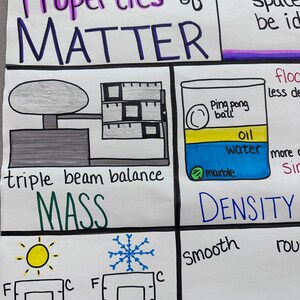 Properties of
MATTER
space
be id
triple beam balance
MASS
Ping pong
ball
oil
water
marble
floa
less de
more d
sin
DENSITY
F C
F C
smooth
rou